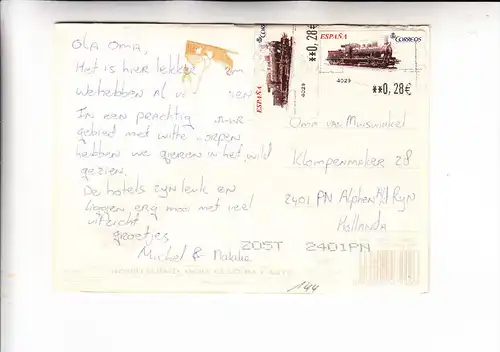 OLA OMA,
Het is hier lekker
We hebben Al
In een prachtig
gebied met witte
hebben we gieren in het wild
gezien.
De hotels zyn leuk en
liggen erg mooi met veel
uitzicht
groetjes
Michel &
ESPAÑA
**0,28
4029
ESPAÑA
CORREOS
4029
**0,28€
Oma van Muiswinkel
Klompenmaker 28
2401 PN Alphen a/d Ryn
Hollanda
ZOST 2401PN
144